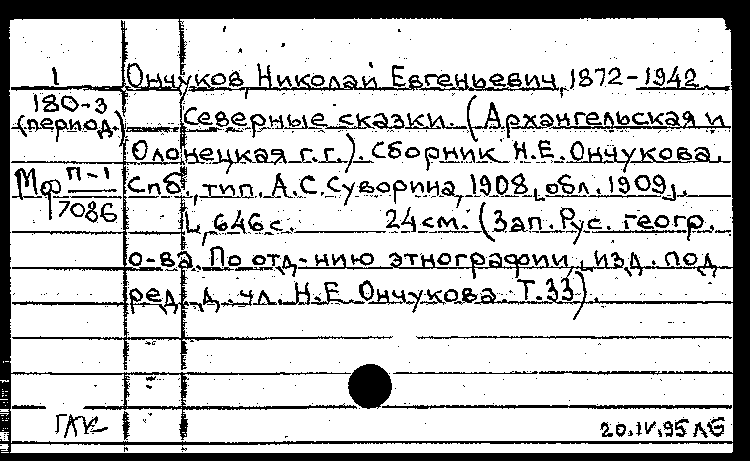 1 Ончуков, Николай Евгеньевич, 1872-1942.
180-3 Северные сказки. (Архангельская и
(период.)
Олонецкая г.г.). Сборник Н.Е.Ончукова.
Мф П-1 Спб., тип. А.С.Суворина, 1908, [обл. 1909].
17086
L, 646 с. 24 см. (Зап. Рус. геогр.
о-ва. По отд-нию этнографии, [изд. под
ред. д. чл. Н.Е Ончукова. Т.33).
20.IV.95 ЛБ